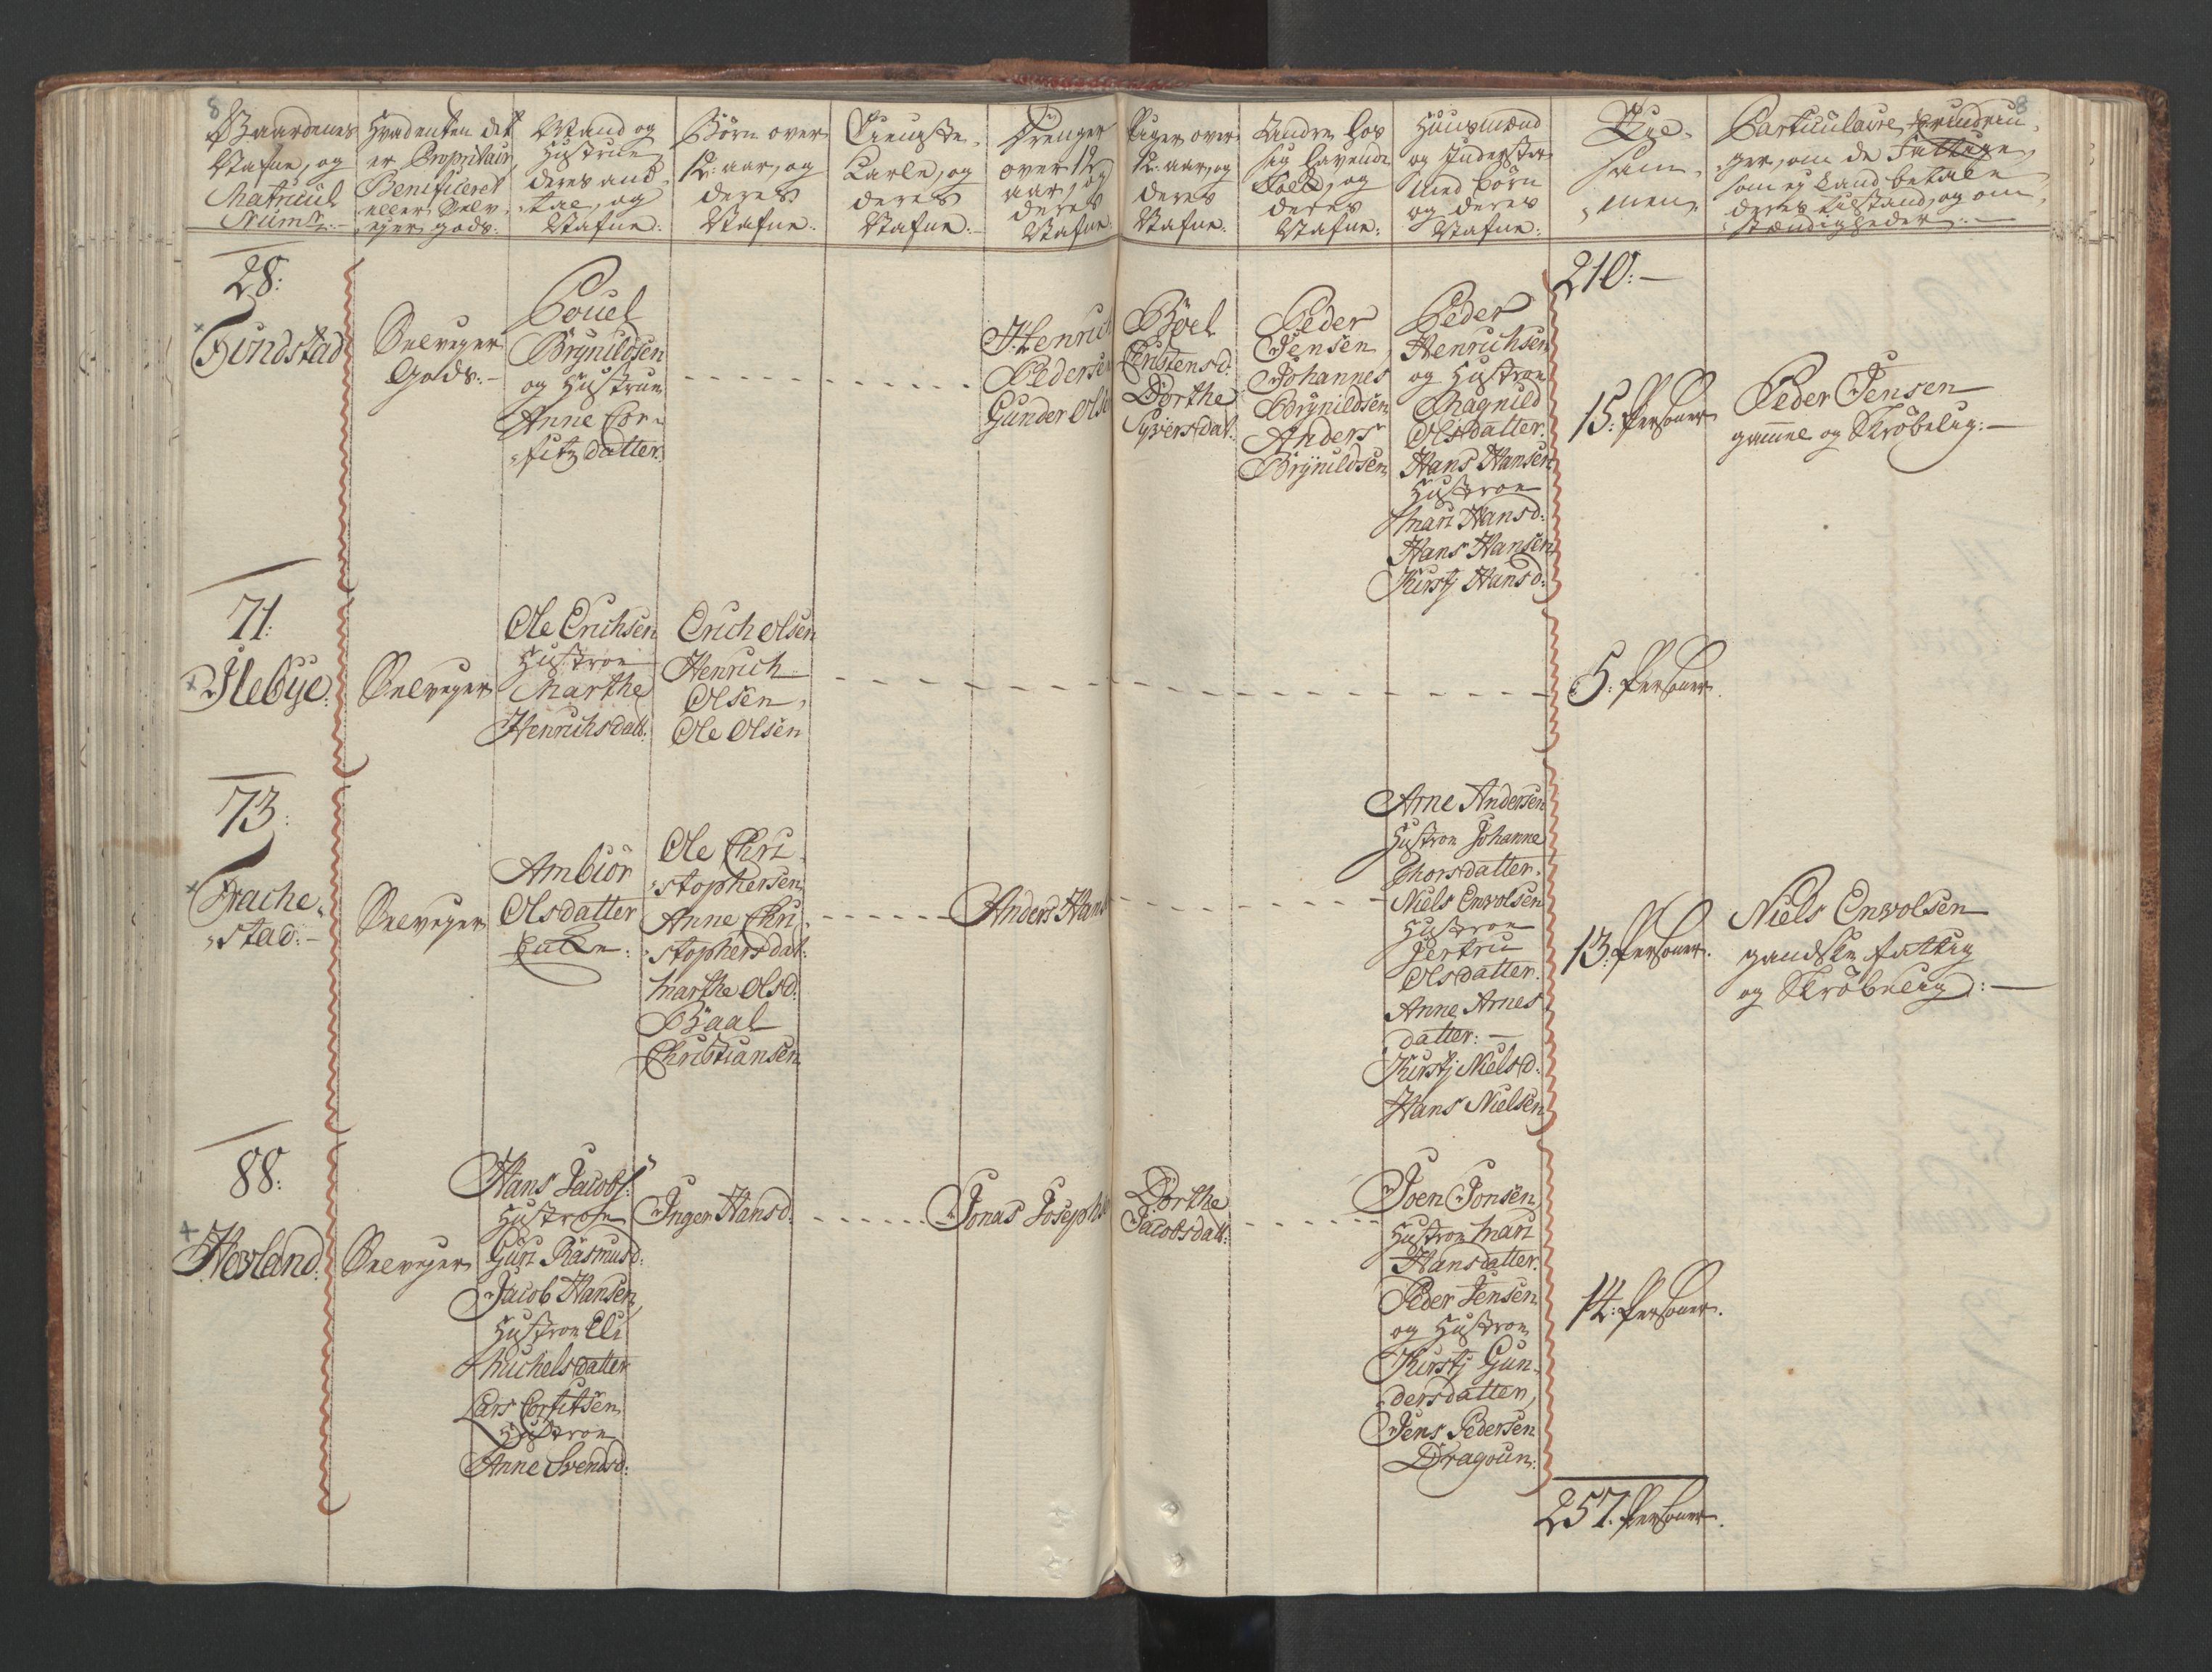 8
Gaardenes
Nafne, og
Matricul
Numr:
Hvadenten det
er Propritair,
Benificeret
eller Selv-
ejer gods:
Mand og
Hustrue
deres and-
tal, og
Nafne:
Börn over
12: aar, og
deres
Nafne:
Tieneste
Karle, og
deres
Nafne:
Drenger
over 12
aar, og
deres
Nafne:
Piger over
12: aar, og
deres
Nafne:
Andre hos
sig havende
Folk, og
deres
Nafne:
Huusmænd
og Inderster
med börn
og deres
Nafne:
Til-
sam-
men,
8
Particulaire Erindrin-
ger, om de Fattige,
som ej kand betale
deres tilstand, og om-
stændigheder:
28:
Findstad
Selvejer
Gods:
Pouel
Brynildsen
og Hustrue
Anne Cor-
fitz datter:
Henrich
Pedersen
Gunder Olse
Böel
Christensd:
Dorthe
Syversdat:
Peder
Jensen
Johannes
Brynildsen
Anders
Brynildsen
Peder
Henrichsen
og Hustroe
Magnild
Olsdatter:
Hans Hansen
Hustroe
Mari Hansd:
Hans Hansen
Kirstj Hansd:
210:
15: Personer
Peder Jensen
gamel og Skröbelig:
71:
Ilebye:
Selvejer
Ole Erichsen
Hustroe
Marthe
Henrichsdatt:
Erich Olsen
Henrich
Olsen,
Ole Olsen
5: Personer.
73:
Frache-
stad:
Selvejer
Ambiör
Olsdatter
Enke:
Ole Chri-
stophersen
Anne Chri-
stophersdat:
Marthe Olsd:
Paal
Christiansen
Anders Hans
Arne Andersen
Hustroe Johanne
Thorsdatter.
Niels Enwolsen
Hustroe
Jertru
Olsdatter.
Anne Arnes
datter:
Kirstj Nielsd:
Hans Nielsen
13: Personer.
Niels Enwolsen
gandske fattig
og Skröbelig:
88:
Hovland:
Selvejer
Hans Jacobs:
Hustroe
Guri Rasmusd:
Jacob Hansen
Hustroe Eli
Michelsdatter
Lars Corfitsen
Hustroe
Anne Svendsd:
Inger Hansd:
Jonas Josephs
Dorthe
Jacobsdatt:
Joen Jonsen
Hustroe Mari
Hansdatter.
Peder Jensen
og Hustroe
Kirstj Gun-
dersdatter,
Jens Pedersen
Dragoun:
14: Personer.
257. Personer.